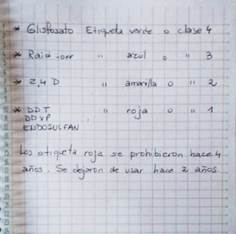 * Glisfosato Etiqueta verde o clase 4
* " azul o " 3
* 2,4 D " amarilla o " 2
* DDT " roja o " 1
DDVP
ENDOSULFAN
Los etiqueta roja se prohibieron hace 4
años. Se dejaron de usar hace 2 años